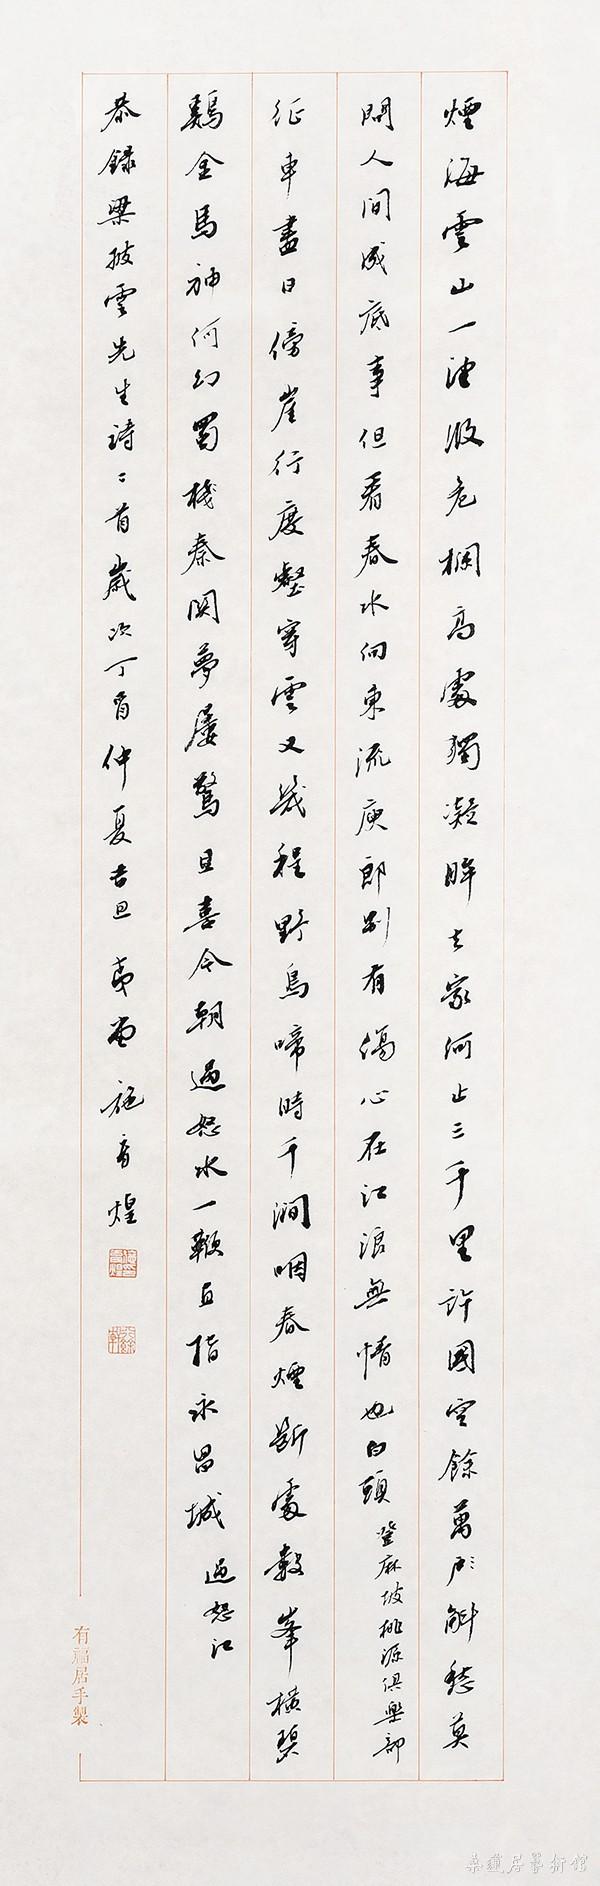 煙海雲山一收危欄高處獨凝眸去家何止三千里許國空餘萬斛愁莫
問人間成底事但看春水向東流庾郎別有傷心在江浪無情也白頭 登麻坡桃源俱樂部
征車盡日傍崖行度壑穿雲又幾程野鳥啼時千澗咽春煙斷處數峯橫碧
鷄金馬神何幻蜀棧秦關夢屢驚且喜今朝過怒水一鞭直指永昌城 過怒江
恭錄梁披雲先生詩二首歲次丁酉仲夏吉旦 施煌
有福居手製
居藝術館